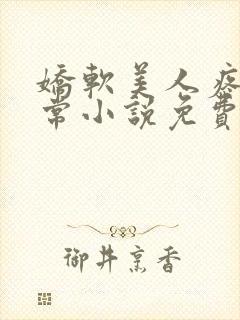 嬌軟美人疼
常小說免費
御井烹香